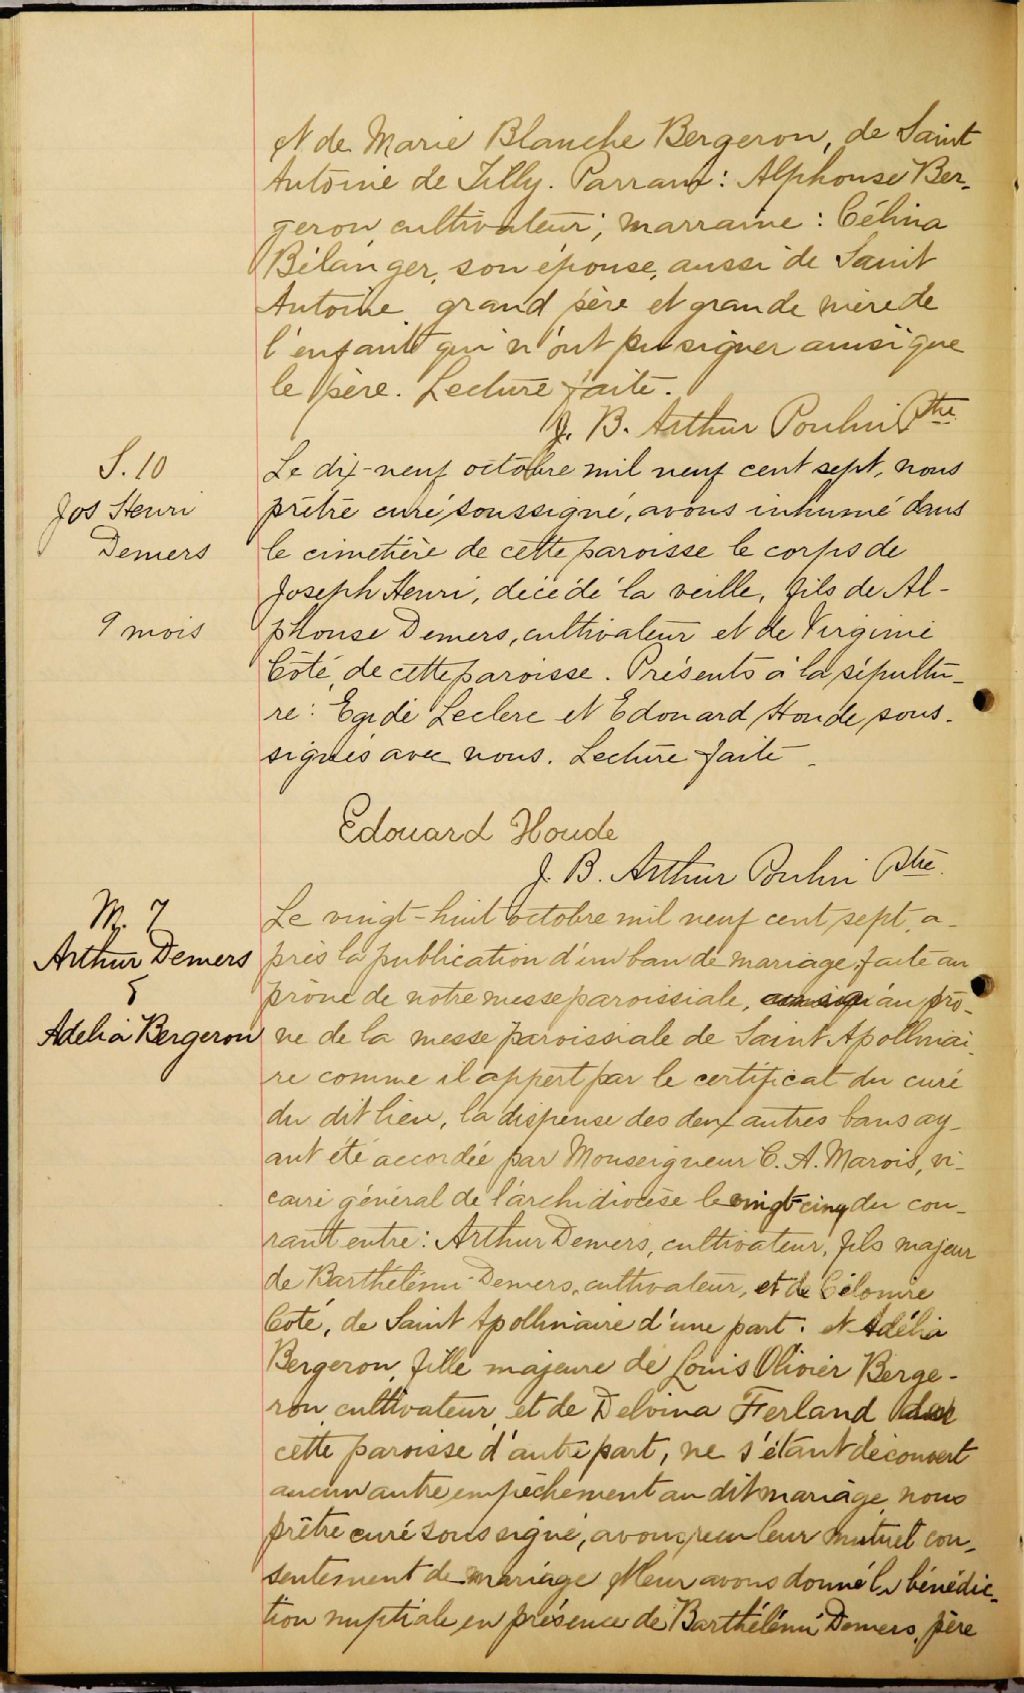 et de Marie Blanche Bergeron, de Saint
Antoine de Tilly. Parrain : Alphonse Ber-
geron cultivateur ; marraine : Célina
Bélanger, son épouse, aussi de Saint
Antoine, grand père et grande mère de
l'enfant qui n'ont pu signer ainsi que
le père. Lecture faite.
J. B. Arthur Poulin Ptre
S. 10
Jos Henri
Demers
9 mois
Le dix-neuf octobre mil neuf cent sept, nous
prêtre curé soussigné, avons inhumé dans
le cimetière de cette paroisse le corps de
Joseph Henri, décédé la veille, fils de Al-
phonse Demers, cultivateur et de Virginie
Côté, de cette paroisse. Présents à la sépultu-
re : Egide Leclerc et Edouard Houde sous-
signés avec nous. Lecture faite.
Edouard Houde
J. B. Arthur Poulin Ptre.
M. 7
Arthur Demers
&
Adelia Bergeron
Le vingt-huit octobre mil neuf cent sept, a-
près la publication d'un ban de mariage, faite au
prône de notre messe paroissiale, au prô-
ne de la messe paroissiale de Saint Apollinai-
re comme il appert par le certificat du curé
du dit lieu, la dispense des deux autres bans ay-
ant été accordée par Monseigneur C. A. Marois, vi-
caire général de l'archidiocèse le vingt-cinq du cou-
rant entre : Arthur Demers, cultivateur, fils majeur
de Barthélémi Demers, cultivateur, et de Célomire
Coté, de Saint Apollinaire d'une part ; et Adélia
Bergeron, fille majeure de Louis Olivier Berge-
ron cultivateur, et de Delvina Ferland de
cette paroisse d'autre part, ne s'étant découvert
aucun autre empêchement au dit mariage, nous
prêtre curé soussigné, avons reçu leur mutuel con-
sentement de mariage et leur avons donné la bénédic-
tion nuptiale en présence de Barthélémi Demers, père